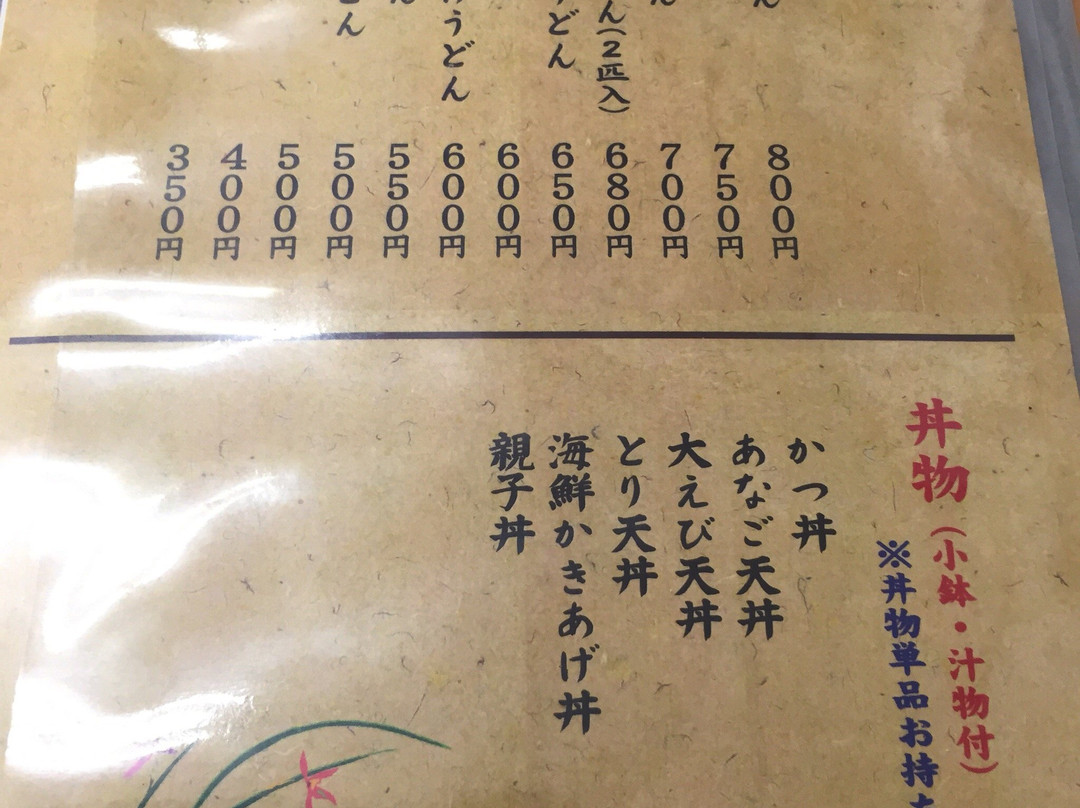 ん(2匹入)
どん
うどん
ん
800円
750円
700円
680円
650円
600円
600円
550円
500円
500円
400円
350円
丼物(小鉢・汁物付)
※丼物単品お持
かつ丼
あなご天丼
大えび天丼
とり天丼
海鮮かきあげ丼
親子丼